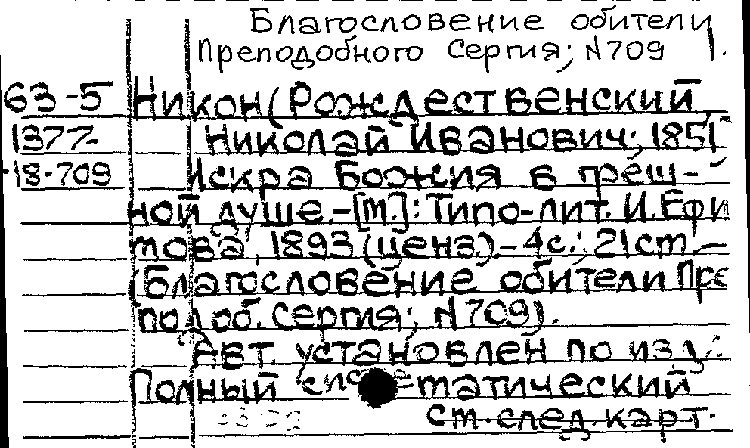 Благословение обители
Преподобного Сергия; N709
63-5 Никон (Рождественский,
1377- Николай Иванович; 1851
18-709 Искра Божия в греш-
ной душе.-[М.]: Типо-лит. И. Ефи
мова, 1893 (ценз).-4с.; 21см.-
(Благословение обители Пре
подоб. Сергия; N709).
Авт. установлен по изд.:
Полный систематический
см. след. карт.